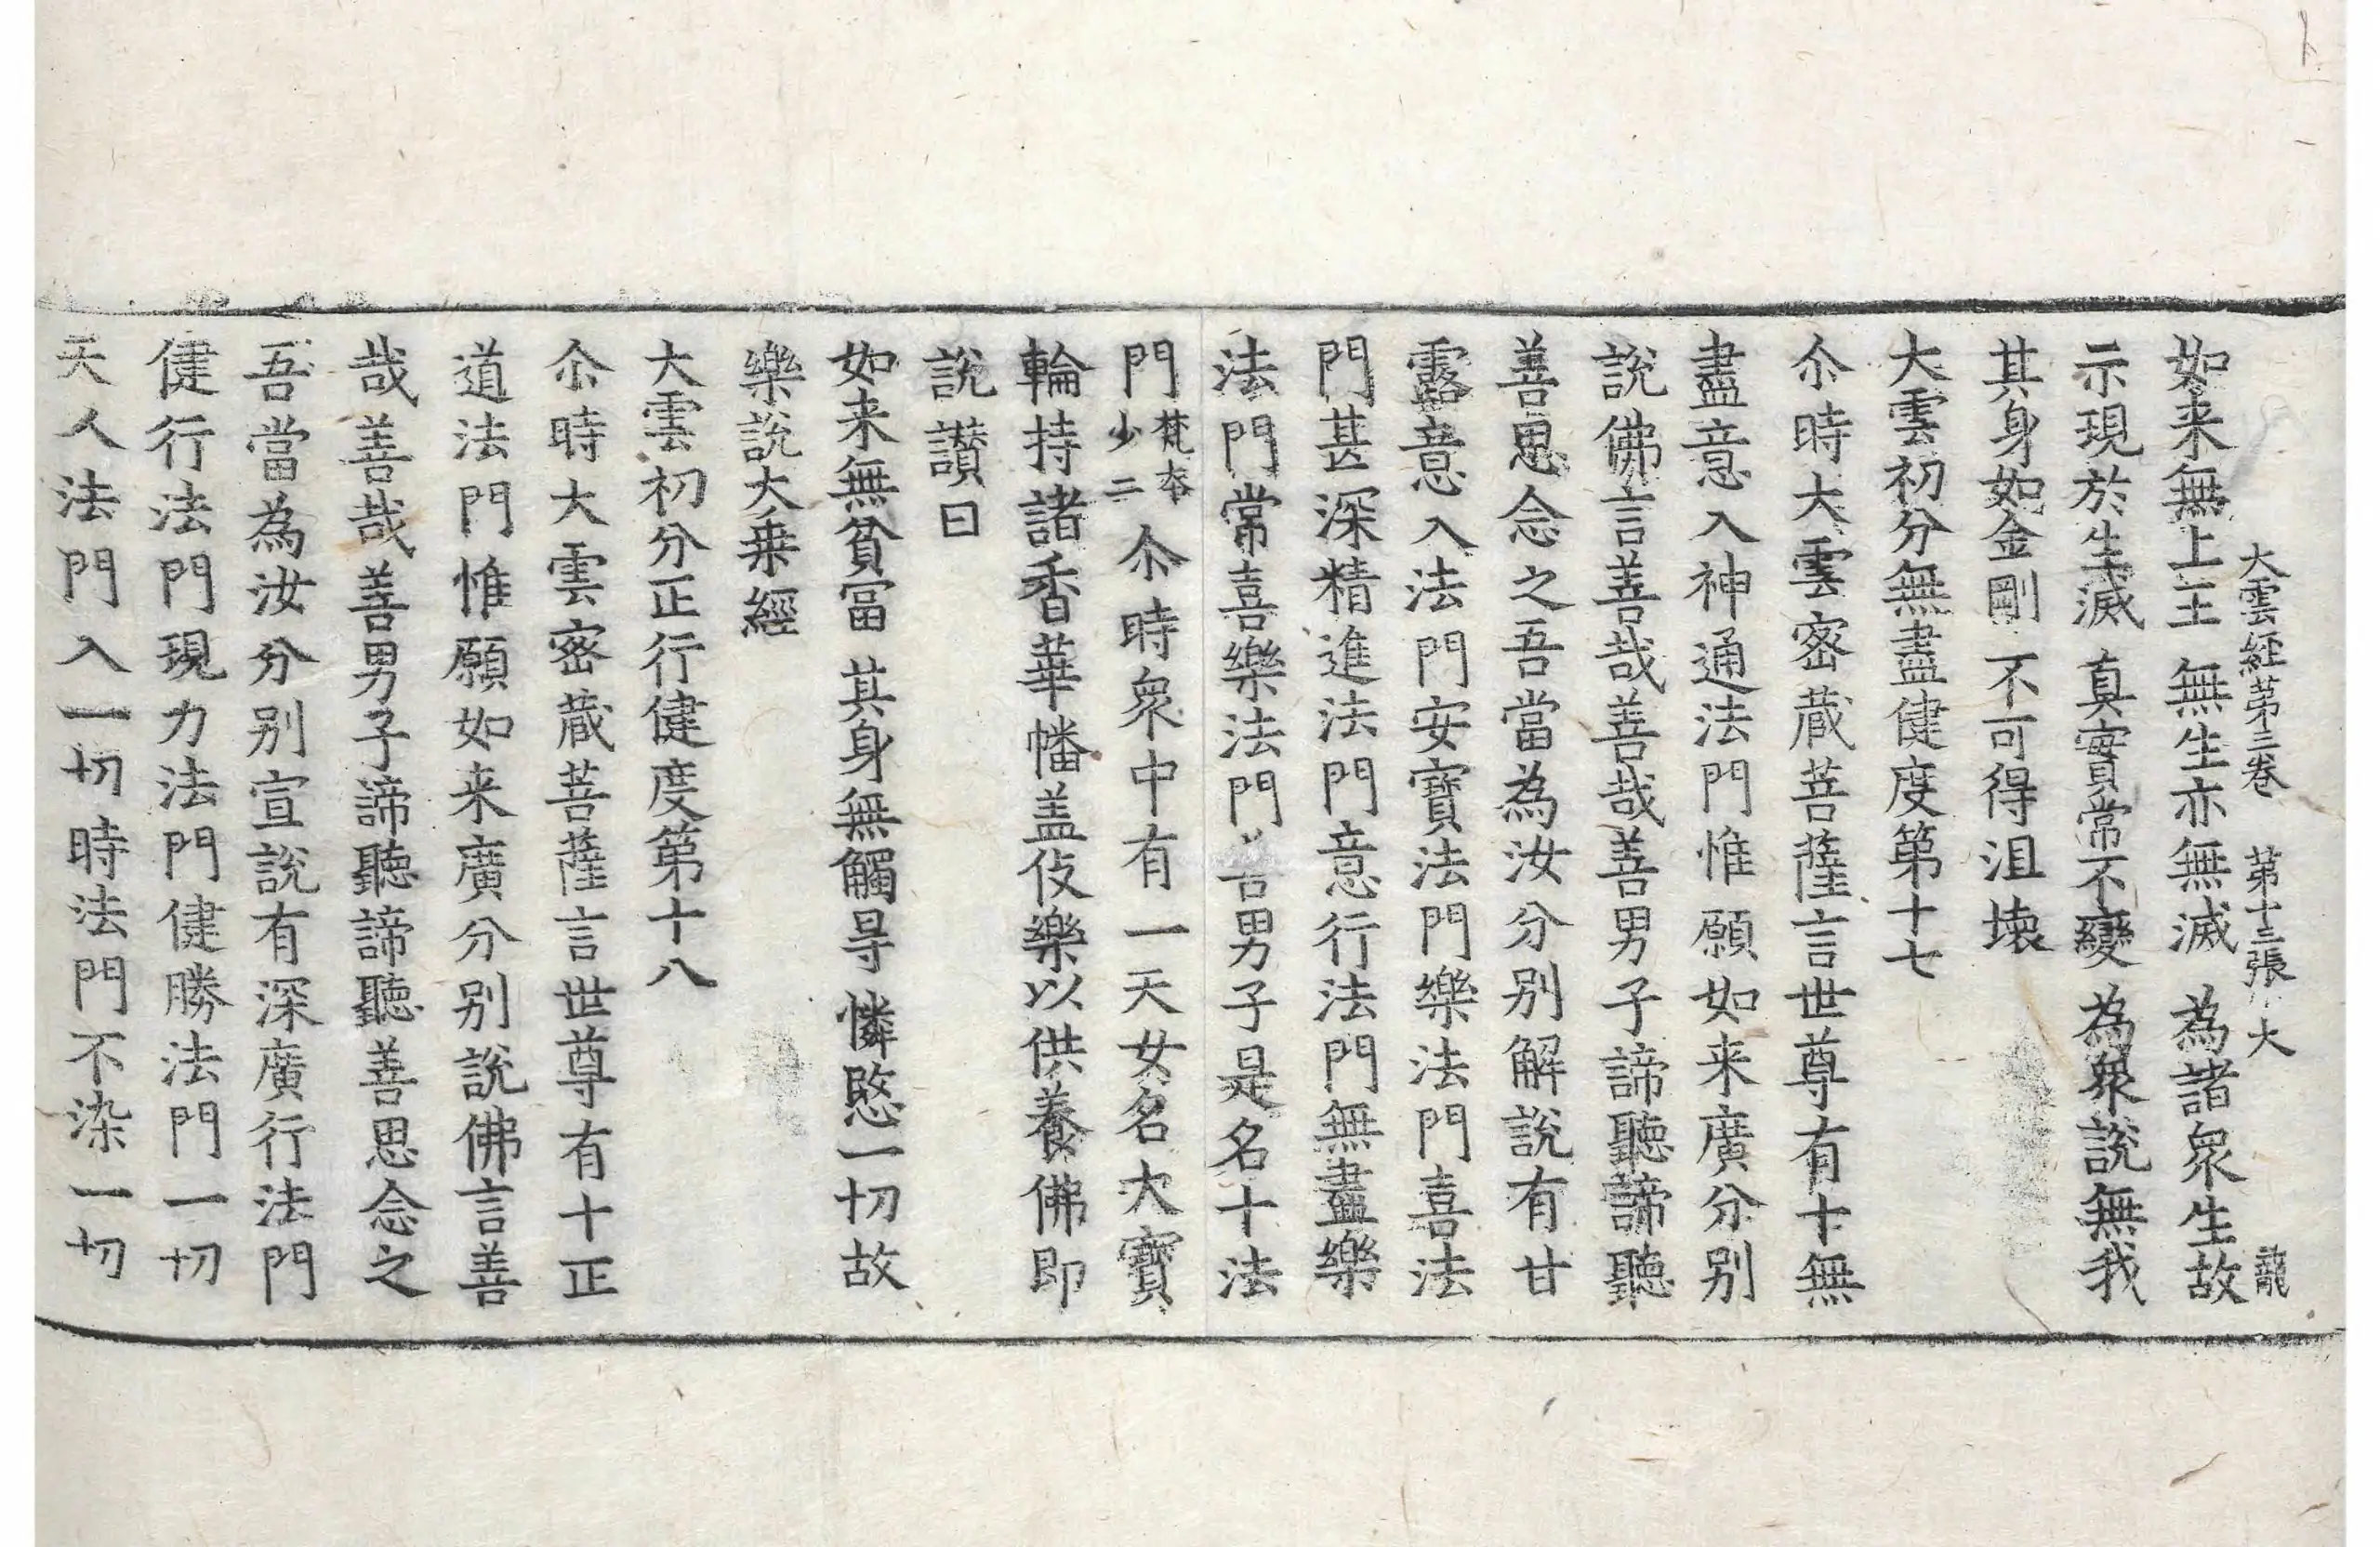 大雲経第三卷　第十三張　大　龍
如来無上王　無生亦無滅　為諸衆生故
示現於生滅　真實常不變　為衆說無我
其身如金剛　不可得沮壞
大雲初分無盡健度第十七
尒時大雲密蔵菩薩言世尊有十無
盡意入神通法門惟願如来廣分别
說佛言善哉善哉善男子諦聽諦聽
善思念之吾當為汝分别解說有甘
露意入法門安寶法門樂法門喜法
門甚深精進法門意行法門無盡樂
法門常喜樂法門善男子是名十法
門梵夲少二尒時衆中有一天女名大寶
輪持諸香華幡盖伎樂以供養佛即
說讃曰
如来無貧富　其身無觸㝵　憐愍一切故
樂說大乗經
大雲初分正行健度第十八
尒時大雲密蔵菩薩言世尊有十正
道法門惟願如来廣分别說佛言善
哉善哉善男子諦聽諦聽善思念之
吾當為汝分别宣說有深廣行法門
健行法門現力法門健勝法門一切
天人法門入一切時法門不染一切